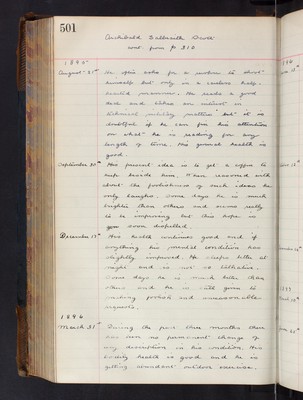 501
Archibald Galbraith Scott
cont. from p 310
1895
August 31st He often asks for a revolver to shoot
himself but only in a careless half-
hearted manner. He reads a good
deal and takes an interest in
technical military matters but it is
doubtful if he can fix his attention
on what he is reading for any
length of time. His general health is
good.
September 30th His present idea is to get a
keep beside him. When reasoned with
about the foolishness of such ideas he
only laughs. Some days he is much
brighter than others and more
to be improving but this hope is
soon dispelled.
December 17th His health continues good and if
anything his mental condition has
slightly improved. He sleeps better at
night and is not so lethargic.
Some days he is much better than
others and he is still given to
making foolish and unreasonable
requests.
1896
March 31st During the past three months there
has been no permanent change of
any description in his condition. His
bodily health is good and he is
getting abundant outdoor exercise.